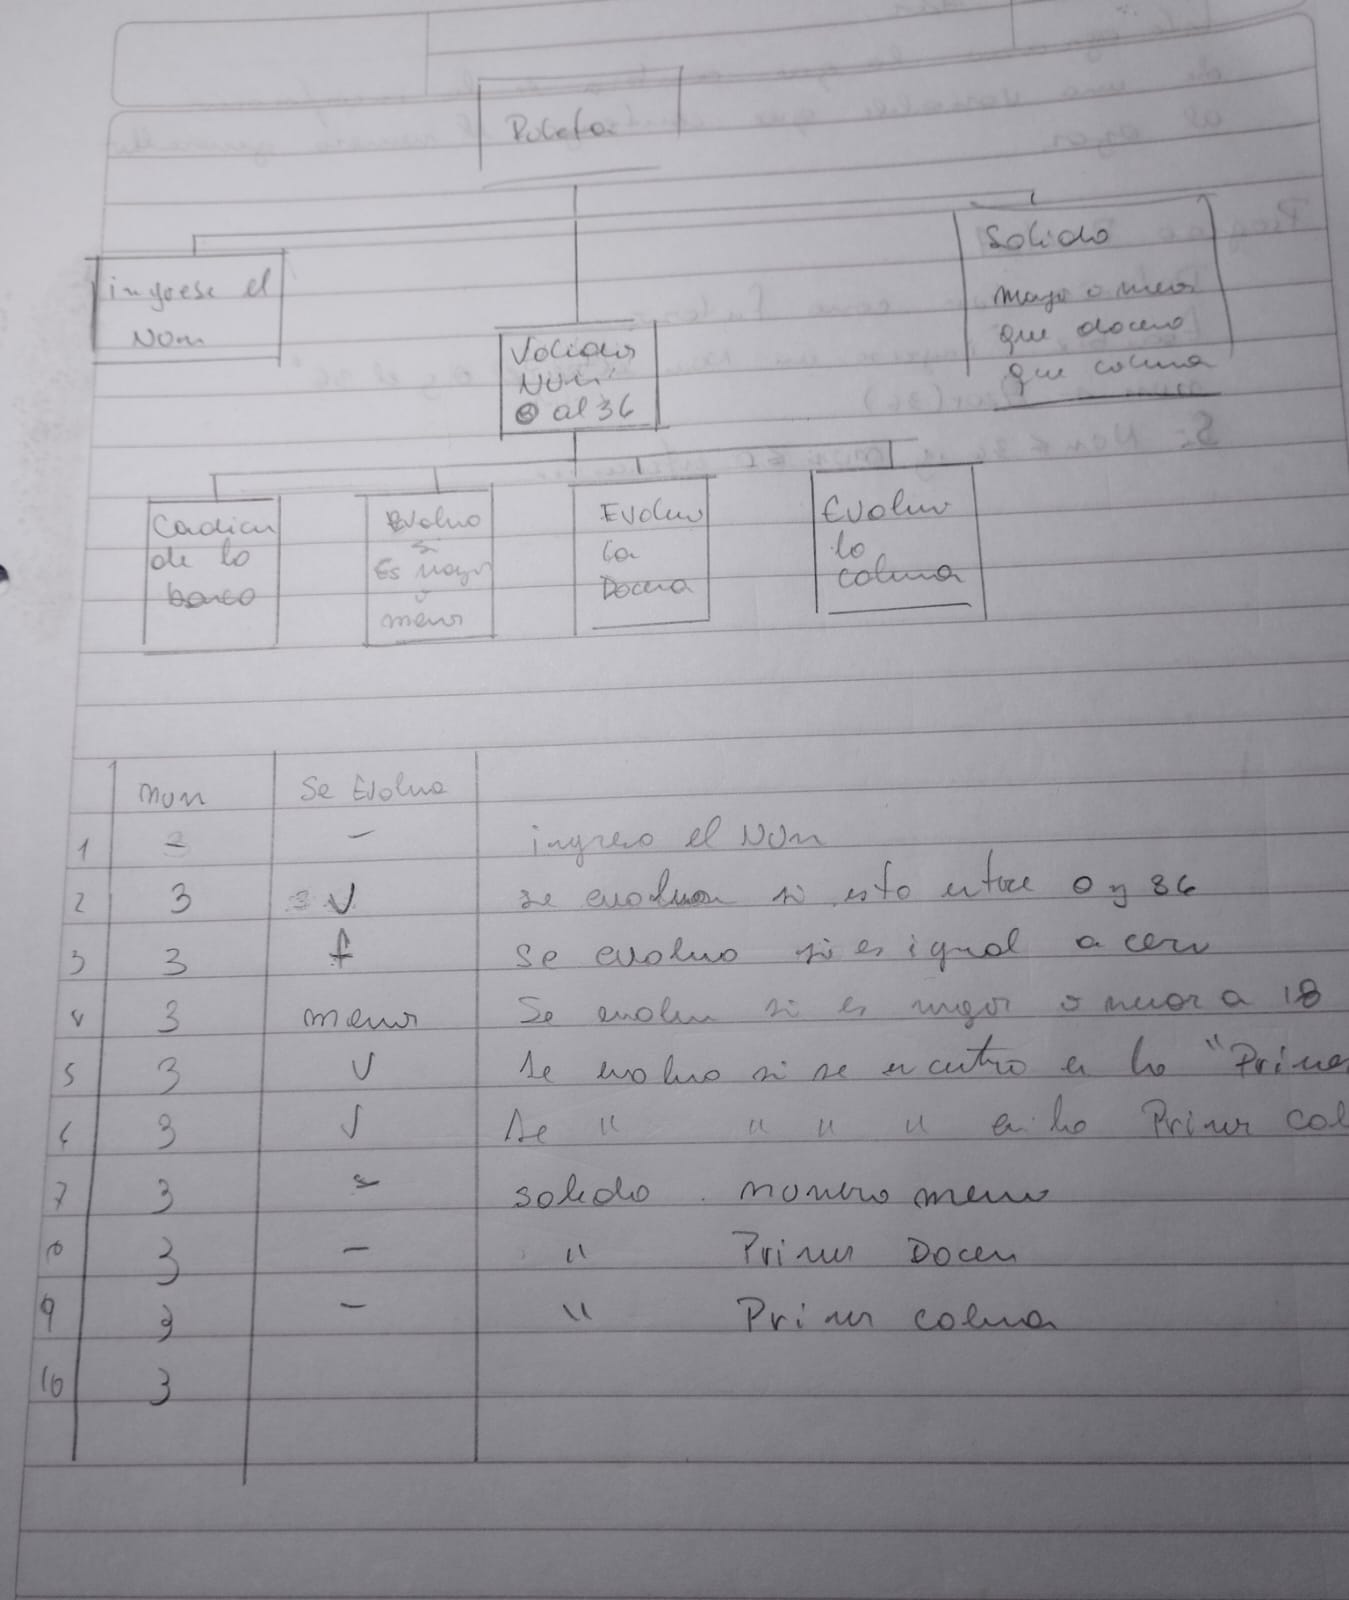 Ruleta
ingrese el
Num
Validar
Num
0 al 36
Salida
mayor o menor
que docena
que columna
Condicion
de la
banca
Evalua
si
Es mayor
o
menor
Evaluar
la
Docena
Evaluar
la
columna
num Se Evalua
1 - - ingreso el Num
2 3 V se evalua si esta entre 0 y 36
3 3 f se evaluo si es igual a cero
4 3 menor Se evalua si es mayor o menor a 18
5 3 V Se evaluo si se encuentra en la "Primer
6 3 V Se " " " " en la Primer col
7 3 - salida numero menor
8 3 - " Primer Docen
9 3 - " Primer columna
10 3